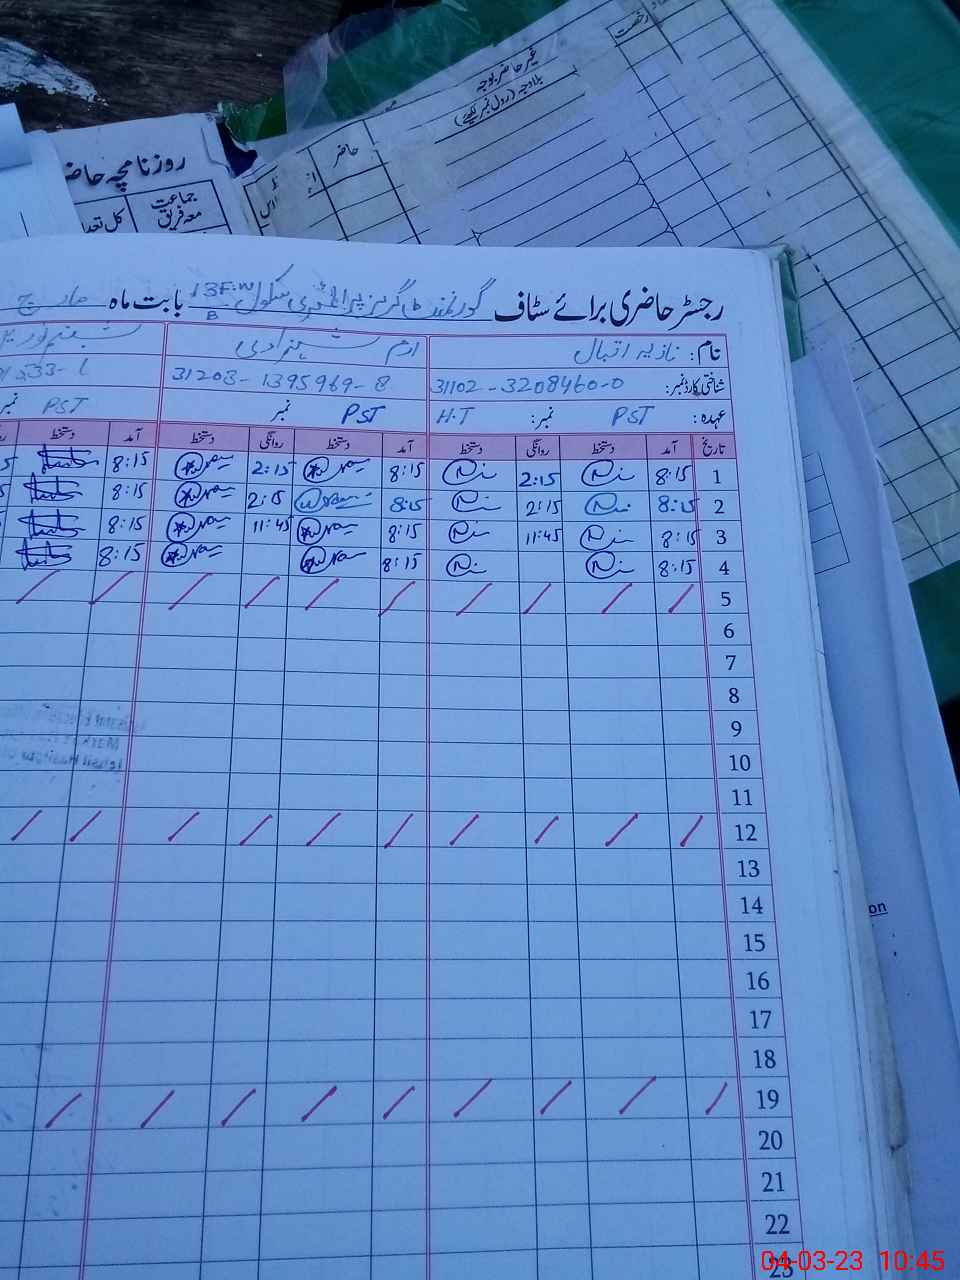 غیر حاضر بوجہ
رخصت
بلاوجہ (رول نمبر لکھیئے)
حاضر
روزنامچہ حاضر
جماعت
معہ فریق
کل تعداد
رجسٹر حاضری برائے سٹاف گورنمنٹ گرلز پرائمری سکول 13F.W بابت ماہ مارچ
B
نام: نازیہ اقبال ارم شہزادی
شناختی کارڈ نمبر: 31102-3208460-0 31203-1395969-8
عہدہ: PST نمبر: H.T PST نمبر PST نمبر
تاریخ آمد دستخط روانگی دستخط آمد دستخط روانگی دستخط آمد دستخط
1 8:15 2:15 8:15 2:15 8:15
2 8:15 2:15 8:15 2:15 8:15
3 8:15 11:45 8:15 11:45 8:15
4 8:15 8:15 8:15
5
6
7
8
9
10
11
12
13
14
15
16
17
18
19
20
21
22
23
on
04-03-23 10:45